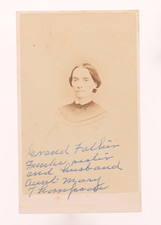 Grand Father
Funks, sister
and husband
Aunt Mary
Thompson